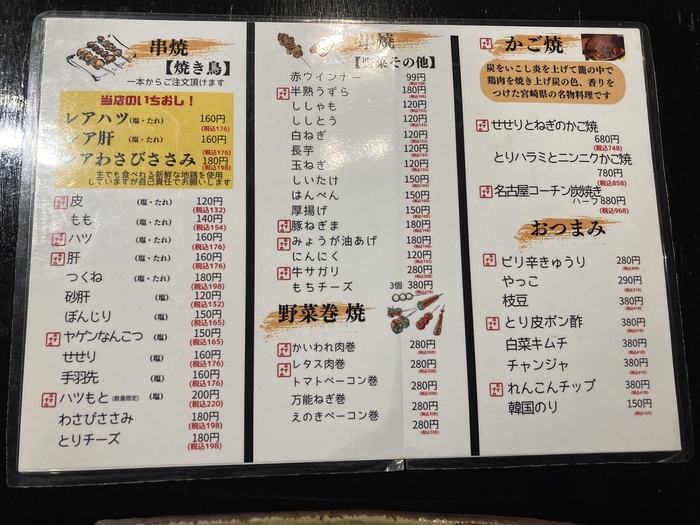 串焼
【焼き鳥】
一本からご注文頂けます
当店のいちおし!
レアハツ(塩・たれ) 160円
(税込176)
レア肝(塩・たれ) 160円
(税込176)
レアわさびささみ 180円
(税込198)
生でも食べれる新鮮な地鶏を使用
していますが自己責任でお願いします
皮 (塩・たれ) 120円
(税込132)
もも (塩・たれ) 140円
(税込154)
ハツ (塩・たれ) 160円
(税込176)
肝 (塩・たれ) 160円
(税込176)
つくね (塩・たれ) 180円
(税込198)
砂肝 (塩) 120円
(税込132)
ぼんじり (塩) 150円
(税込165)
ヤゲンなんこつ (塩) 150円
(税込165)
せせり (塩) 160円
(税込176)
手羽先 (塩) 160円
(税込176)
ハツもと(数量限定) (塩) 200円
(税込220)
わさびささみ 180円
(税込198)
とりチーズ 180円
(税込198)
串焼
【野菜その他】
赤ウインナー 99円
半熟うずら 180円
ししゃも 120円
ししとう 120円
白ねぎ 120円
長芋 120円
玉ねぎ 120円
しいたけ 150円
はんぺん 150円
厚揚げ 150円
豚ねぎま 180円
みょうが油あげ 180円
にんにく 120円
牛サガリ 280円
もちチーズ 3個 380円
野菜巻 焼
かいわれ肉巻 280円
レタス肉巻 280円
トマトベーコン巻 280円
万能ねぎ巻 280円
えのきベーコン巻 280円
かご焼
炭をいこし炎を上げて籠の中で
鶏肉を焼き上げ炭の色、香りを
つけた宮崎県の名物料理です
せせりとねぎのかご焼
680円
(税込748)
とりハラミとニンニクかご焼
780円
(税込858)
名古屋コーチン炭焼き
ハーフ880円
(税込968)
おつまみ
ピリ辛きゅうり 280円
やっこ 290円
枝豆 380円
とり皮ポン酢 380円
白菜キムチ 380円
チャンジャ 380円
れんこんチップ 380円
韓国のり 150円